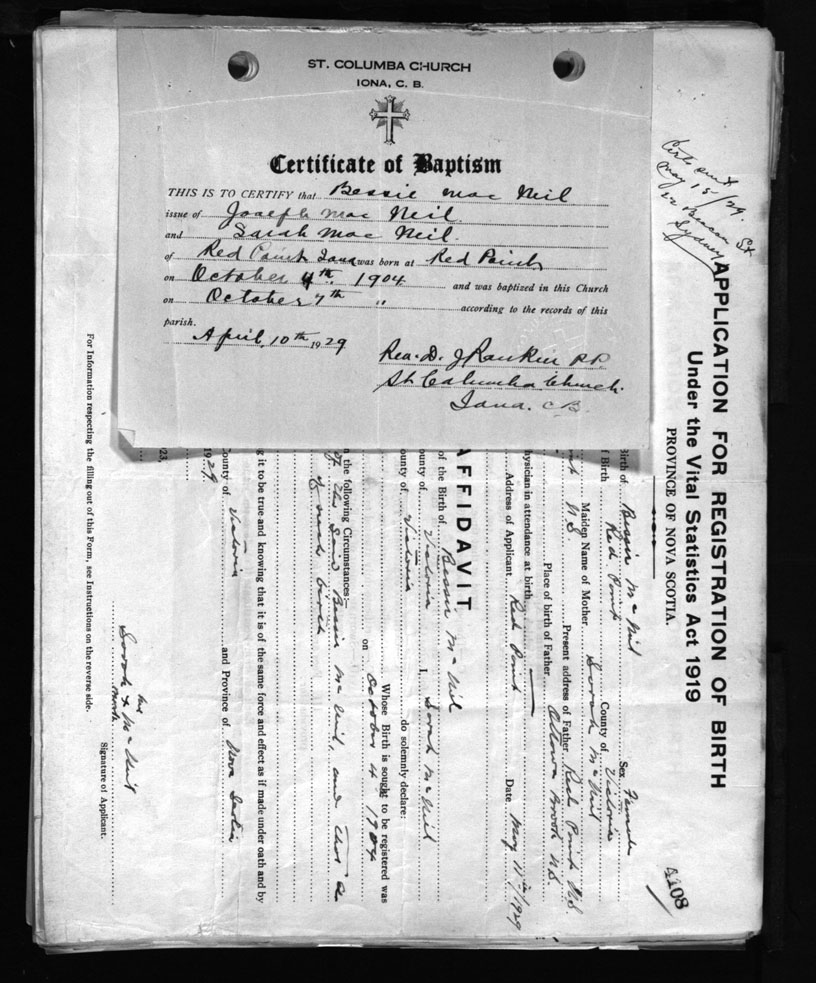 ST. COLUMBA CHURCH
IONA, C. B.
Certificate of Baptism
THIS IS TO CERTIFY that Bessie Mac Neil
issue of Joseph Mac Neil
and Sarah Mac Neil.
of Red Point Iona was born at Red Point
on October 4th 1904 and was baptized in this Church
on October 7th " according to the records of this
parish.
April 10th 1929
Rev. D. J Rankin P.P.
St Columba Church.
Iona. C B.
Cert. sent
May 15/29.
22 Beacon St
Sydney
APPLICATION FOR REGISTRATION OF BIRTH
Under the Vital Statistics Act 1919
PROVINCE OF NOVA SCOTIA.
4108
Birth of Bessie McNeil Sex Female
f Birth Red Point County of Victoria
Maiden Name of Mother Sarah McNeil
N.S. Present address of Father Red Point N.S.
Place of birth of Father Ottawa Brook N.S.
hysician in attendance at birth
Address of Applicant Red Point Date May 11th/1929
AFFIDAVIT
of the Birth of Bessie McNeil
ounty of Victoria I, Sarah McNeil
ounty of Victoria do solemnly declare:
Whose Birth is sought to be registered was
on October 4th 1904
n the following Circumstances
of the said Bessie McNeil, and that
of such birth
g it to be true and knowing that it is of the same force and effect as if made under oath and by
ounty of Victoria and Province of Nova Scotia
1929.
923,
her
Sarah x McNeil
mark
Signature of Applicant.
For Information respecting the filling out of this Form, see Instructions on the reverse side.